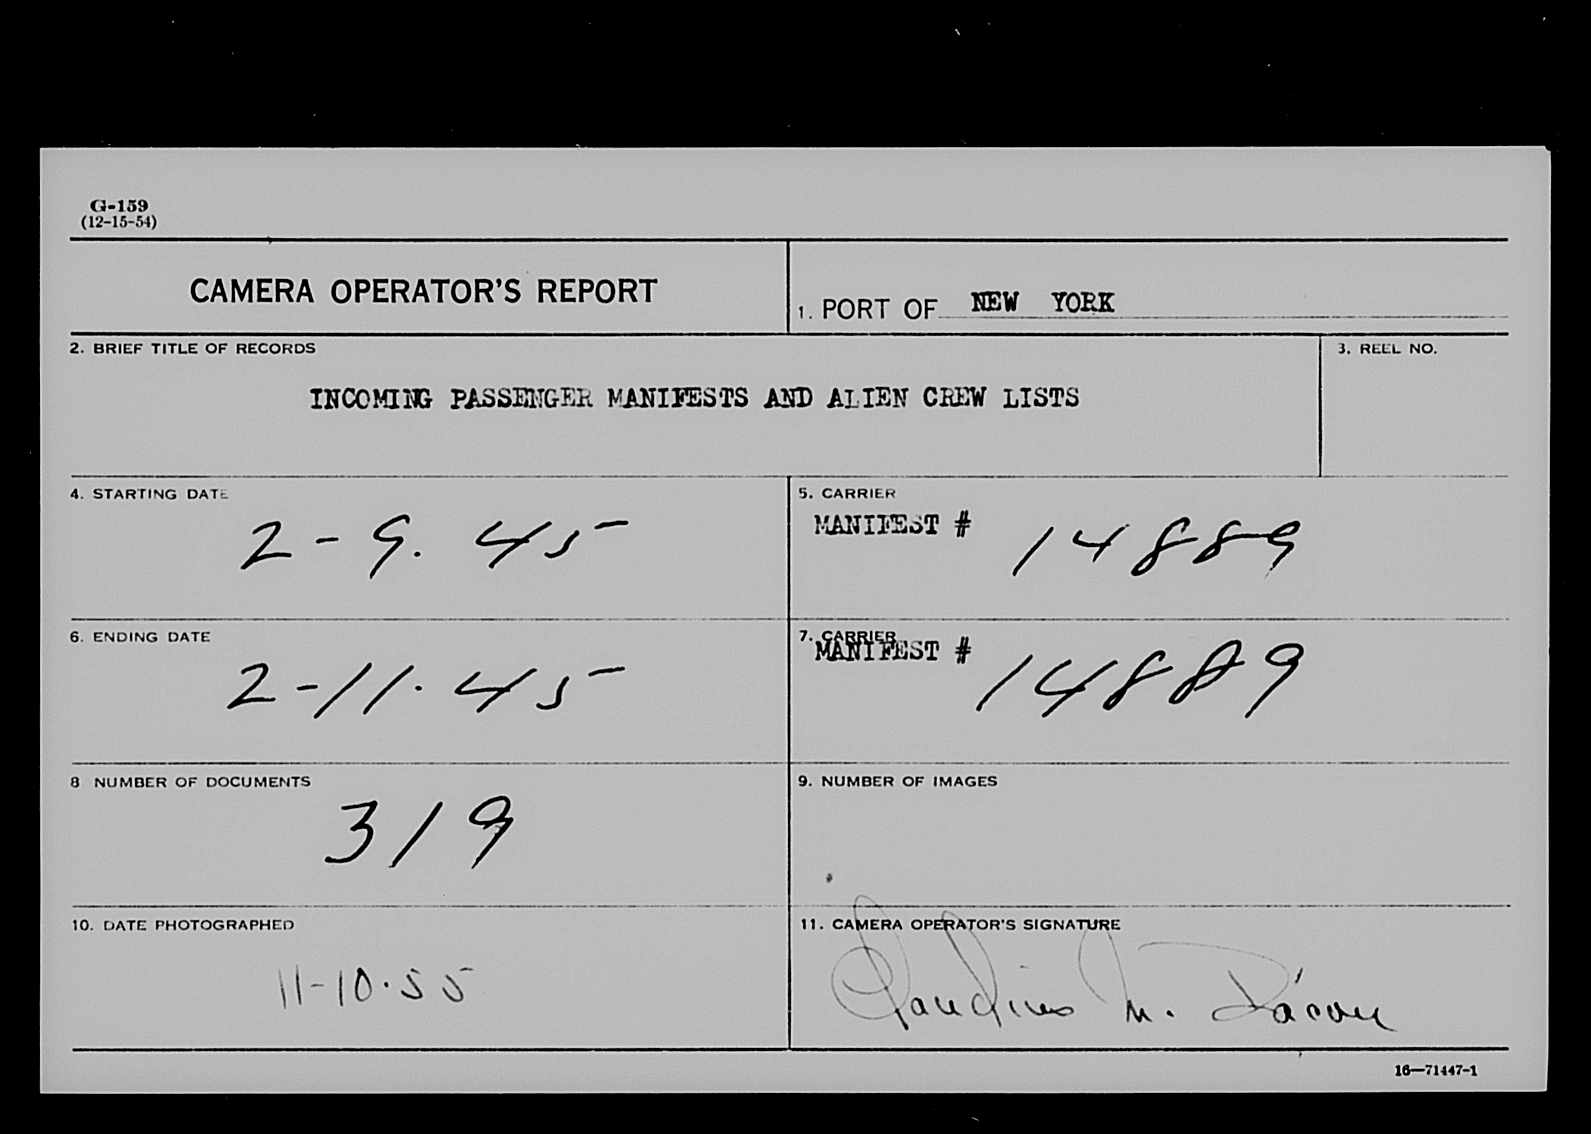 G-159
(12-15-54)
CAMERA OPERATOR'S REPORT
1. PORT OF NEW YORK
2. BRIEF TITLE OF RECORDS
3. REEL NO.
INCOMING PASSENGER MANIFESTS AND ALIEN CREW LISTS
4. STARTING DATE
2-9.45
5. CARRIER
MANIFEST # 14889
6. ENDING DATE
2-11.45
7. CARRIER
MANIFEST # 14889
8 NUMBER OF DOCUMENTS
319
9. NUMBER OF IMAGES
10. DATE PHOTOGRAPHED
11-10.55
11. CAMERA OPERATOR'S SIGNATURE
Claudius M.
16—71447-1